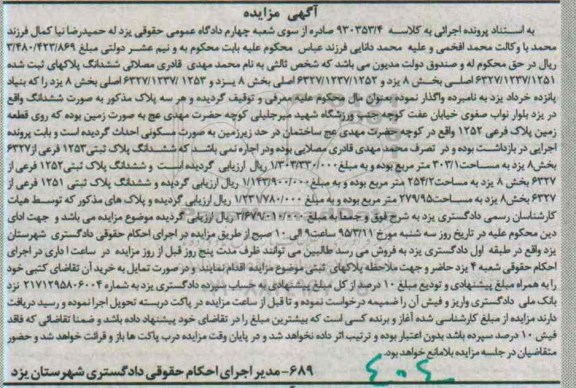 آگهی مزایده
به استناد پرونده اجرائی به کلاسه ۹۳۰۳۵۳/۴ صادره از سوی شعبه چهارم دادگاه عمومی حقوقی یزد له حمیدرضا نیا کمال فرزند
محمد با وکالت محمد افخمی و علیه محمد دانایی فرزند عباس محکوم علیه بابت محکوم به و نیم عشر دولتی مبلغ ۳/۴۸۰/۴۲۳/۸۶۹
ریال در حق محکوم له و صندوق دولت مدیون می باشد که شخص ثالثی به نام محمد مهدی قادری مصلائی ششدانگ پلاکهای ثبت شده
۶۳۲۷/۱۲۳۷/۱۲۵۱ اصلی بخش ۸ یزد و ۶۳۲۷/۱۲۳۷/۱۲۵۲ اصلی بخش ۸ یزد و ۶۳۲۷/۱۲۳۷/۱۲۵۳ اصلی بخش ۸ یزد را که بنیاد
پانزده خرداد یزد به نامبرده واگذار نموده بعنوان مال محکوم علیه معرفی و توقیف گردیده و هر سه پلاک مذکور به صورت ششدانگ واقع
در یزد بلوار نواب صفوی خیابان عفت کوچه جنب ورزشگاه شهید میرجلیلی کوچه حضرت مهدی عج به صورت زمین بوده که روی قطعه
زمین پلاک فرعی ۱۲۵۲ واقع در کوچه حضرت مهدی عج ساختمان در حد زیرزمین به صورت مسکونی احداث گردیده است و بابت پرونده
اجرایی در بازداشت بوده و در تصرف محمد مهدی قادری مصلایی بوده ودر اجاره نمی باشد که ششدانگ پلاک ثبتی ۱۲۵۳ فرعی از ۶۳۲۷
بخش۸ یزد به مساحت ۳۰۳/۱ متر مربع بوده و به مبلغ ۱/۳۰۳/۳۳۰/۰۰۰ ریال ارزیابی گردیده است و ششدانگ پلاک ثبتی ۱۲۵۲ فرعی از
۶۳۲۷ بخش ۸ یزد به مساحت ۲۵۴/۲ متر مربع بوده و به مبلغ ۱/۱۴۳/۹۰۰/۰۰۰ ریال ارزیابی گردیده و ششدانگ پلاک ثبتی ۱۲۵۱ فرعی از
۶۳۲۷ بخش۸ یزد به مساحت ۲۷۹/۹۵ متر مربع بوده و به مبلغ ۱/۲۳۱/۷۸۰/۰۰۰ ریال ارزیابی گردیده و پلاک های مذکور که توسط هیات
کارشناسان رسمی دادگستری یزد به شرح فوق و جمعا به مبلغ ۳/۶۷۹/۰۱۰/۰۰۰ ریال ارزیابی گردیده موضوع مزایده می باشد و جهت ادای
دین محکوم علیه در تاریخ روز سه شنبه مورخ ۹۵/۳/۱۱ ساعت ۹ الی ۱۰ صبح از طریق مزایده در اجرای احکام حقوقی دادگستری شهرستان
یزد واقع در طبقه اول دادگستری یزد به فروش می رسد طالبین می توانند ظرف مدت پنج روز قبل از روز مزایده در ساعت اداری در اجرای
احکام حقوقی شعبه ۴ یزد حاضر و جهت ملاحظه پلاکهای ثبتی موضوع مزایده اقدام نمایند و در صورت تمایل به خرید آن تقاضای کتبی خود
را به همراه مبلغ پیشنهادی و تودیع مبلغ ۱۰ درصد از کل مبلغ پیشنهادی به حساب سپرده دادگستری یزد به شماره ۲۱۷۱۲۹۵۸۰۶۰۰۴ نزد
بانک ملی دادگستری واریز و فیش آن را ضمیمه درخواست نموده و تا قبل از ساعت مزایده در پاکت دربسته تحویل اجرا نموده و رسید دریافت
دارند مزایده از مبلغ کارشناسی شده آغاز و برنده کسی است که بیشترین مبلغ را در تقاضای خود پیشنهاد داده باشد و ضمنا تقاضائی که فاقد
فیش ۱۰ درصد سپرده باشد بدون اعتبار بوده و ترتیب اثر داده نخواهد شد و در پایان وقت مزایده درب پاکت ها باز و قرائت خواهد شد و حضور
متقاضیان در جلسه مزایده بلامانع خواهد بود.
۶۸۹- مدیر اجرای احکام حقوقی دادگستری شهرستان یزد
۴۰۴